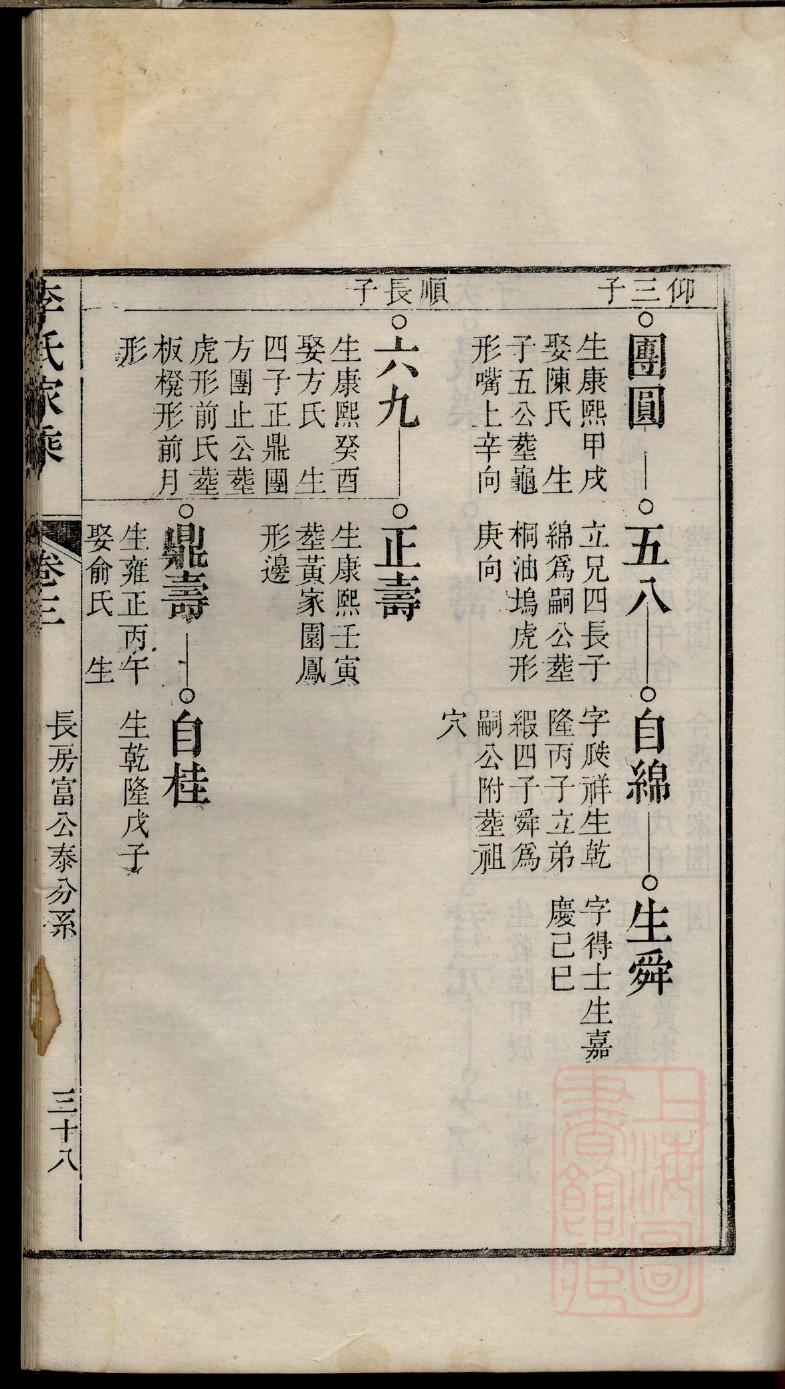 仰三子
順長子
團圓
生康熙甲戌
娶陳氏 生
子五公塟龜
形嘴上辛向
五八
立兄四長子
綿爲嗣公塟
桐油塢虎形
庚向
自綿
字瓞祥生乾
隆丙子立弟
緞四子舜爲
嗣公附塟祖
穴
生舜
字得士生嘉
慶己巳
六九
生康熙癸酉
娶方氏 生
四子正鼎團
方團止公塟
虎形前氏塟
板櫈形前月
形
正壽
生康熙壬寅
塟黃家園鳳
形邊
鼎壽
生雍正丙午
娶俞氏 生
自桂
生乾隆戊子
李氏家乘
卷三
長房富公泰分系
三十八
上海圖書館藏